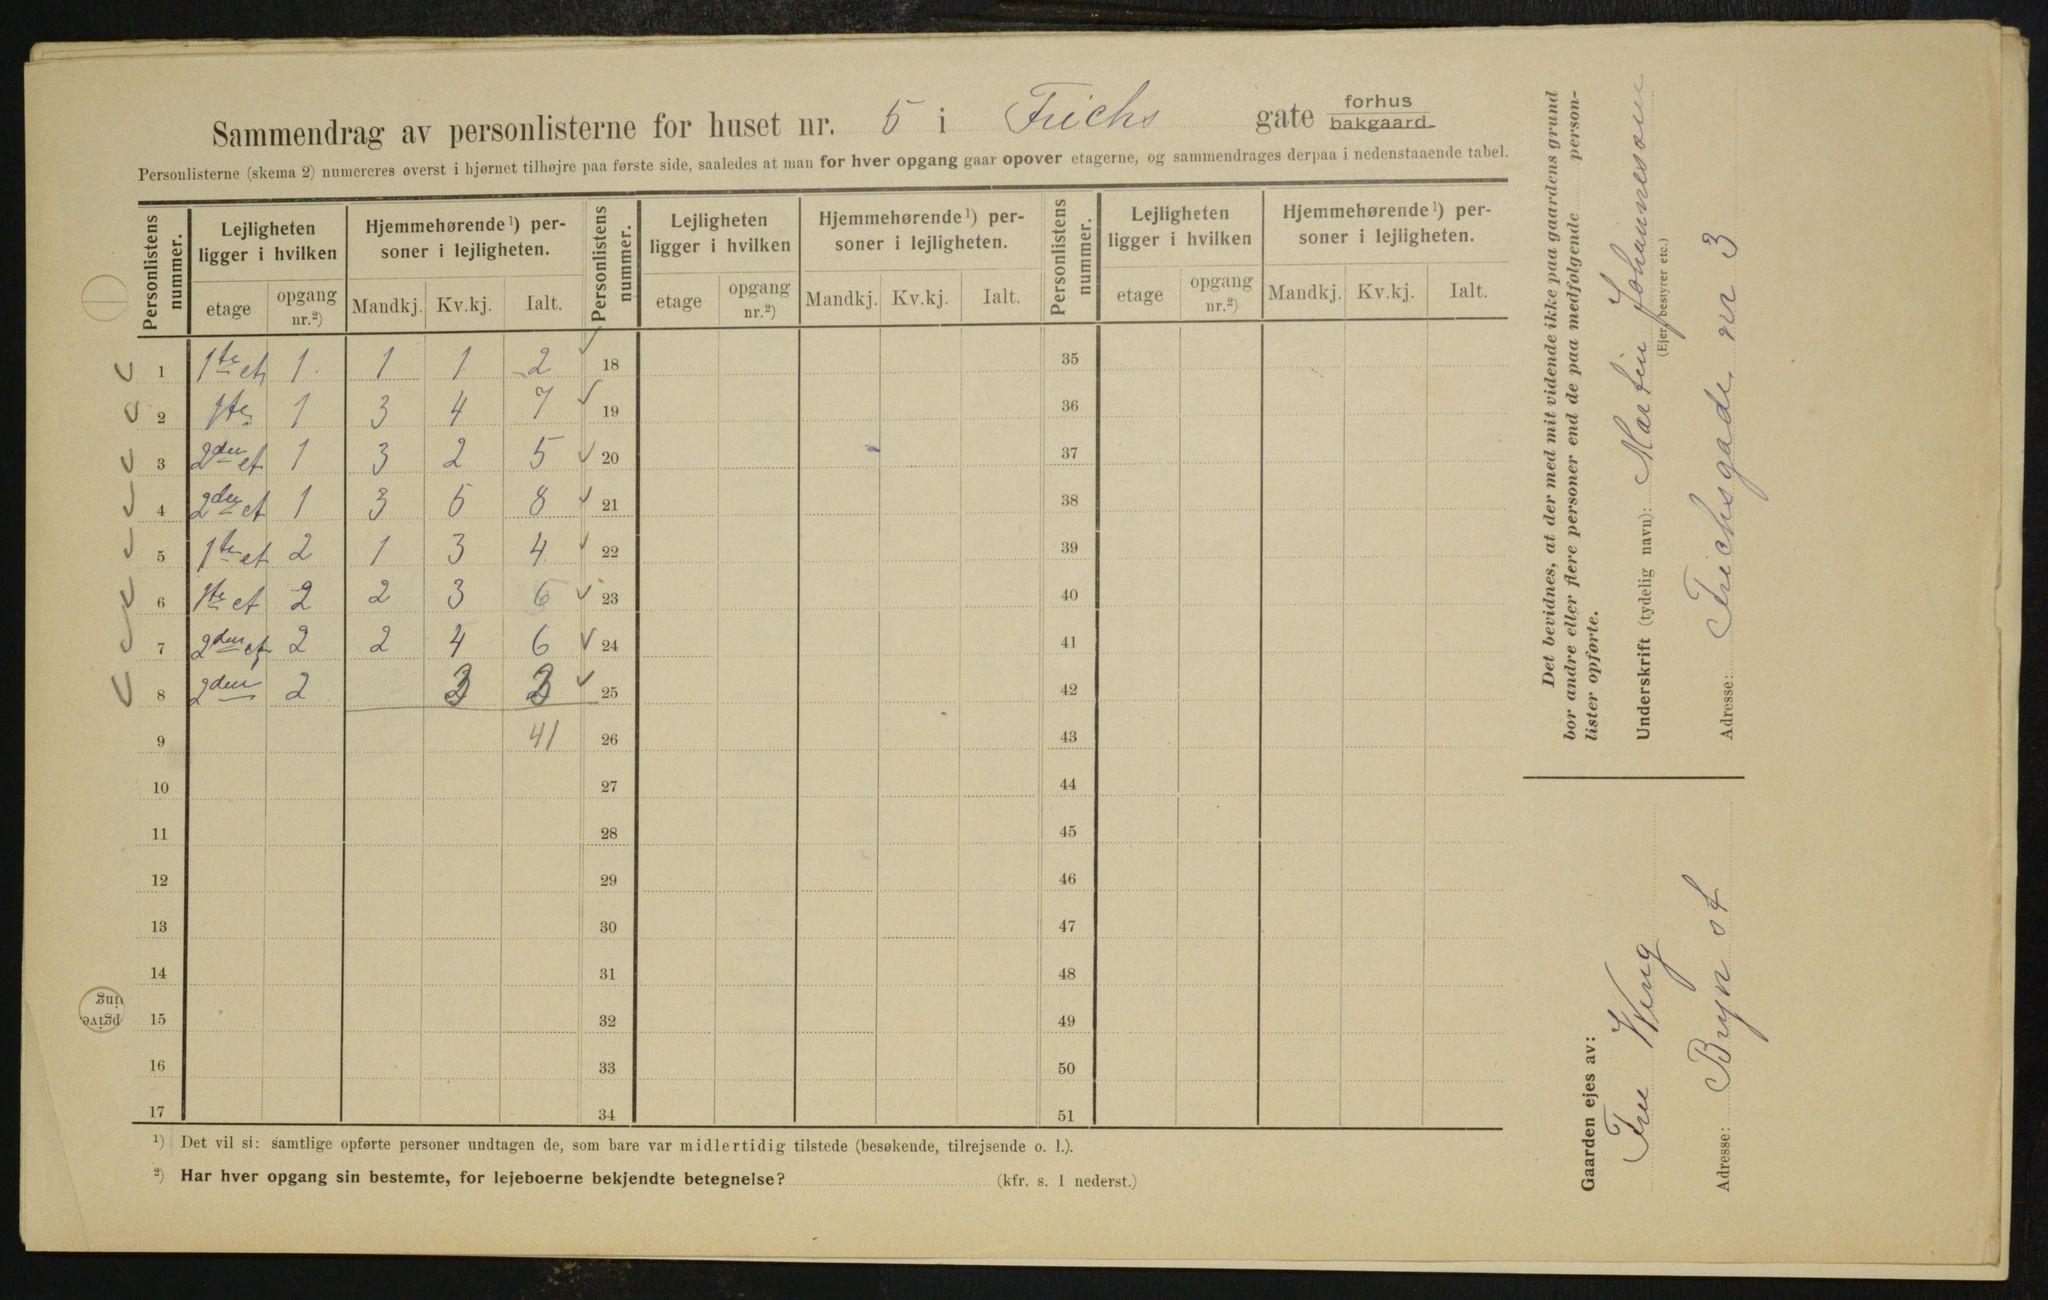 Sammendrag av personlisterne for huset nr. 5 i Frichs gate forhus bakgaard.
Personlisterne (skema 2) numereres øverst i hjørnet tilhøjre paa første side, saaledes at man for hver opgang gaar opover etagerne, og sammendrages derpaa i nedenstaaende tabel.
Personlistens nummer. Lejligheten ligger i hvilken Hjemmehørende¹) personer i lejligheten. Personlistens nummer. Lejligheten ligger i hvilken Hjemmehørende¹) personer i lejligheten. Personlistens nummer. Lejligheten ligger i hvilken Hjemmehørende¹) personer i lejligheten.
etage opgang nr.²) Mandkj. Kv.kj. Ialt. etage opgang nr.²) Mandkj. Kv.kj. Ialt. etage opgang nr.²) Mandkj. Kv.kj. Ialt.
1 1te et 1 1 1 2 18 35
2 1te 1 3 4 7 19 36
3 2den et 1 3 2 5 20 37
4 2den et 1 3 5 8 21 38
5 1te et 2 1 3 4 22 39
6 1te et 2 2 3 6 23 40
7 2den et 2 2 4 6 24 41
8 2den 2 3 3 25 42
9 41 26 43
10 27 44
11 28 45
12 29 46
13 30 47
14 31 48
15 32 49
16 33 50
17 34 51
¹) Det vil si: samtlige opførte personer undtagen de, som bare var midlertidig tilstede (besøkende, tilrejsende o. l.).
²) Har hver opgang sin bestemte, for lejeboerne bekjendte betegnelse? (kfr. s. 1 nederst.)
Det bevidnes, at der med mit vidende ikke paa gaardens grund
bor andre eller flere personer end de paa medfølgende personlister opførte.
Underskrift (tydelig navn): Martin Johannesson
(Ejer, bestyrer etc.)
Adresse: Frichsgade nr 3
Gaarden ejes av:
Fru Wing
Adresse: Bryn st
pgive
ing